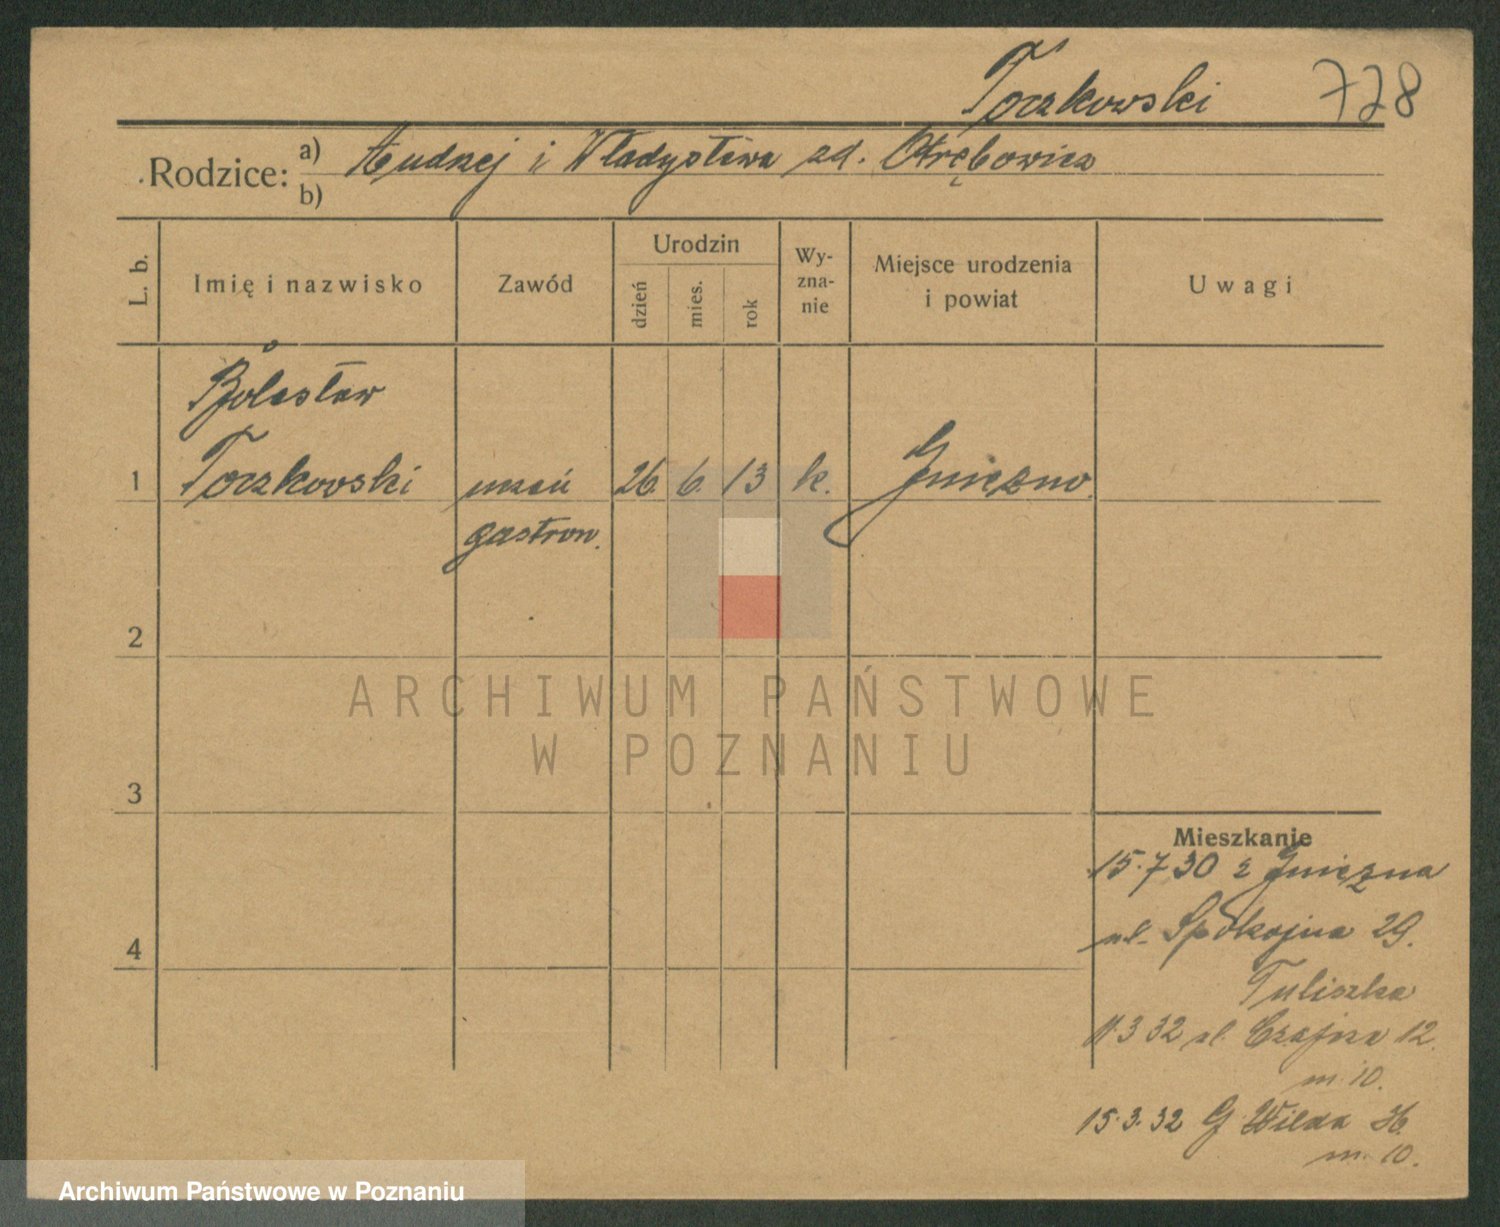 Toczkowski 728
Rodzice: a) Andrzej i Władysława zd. Otrębowicz
b)
L. b. Imię i nazwisko Zawód Urodzin dzień mies. rok Wy-zna-nie Miejsce urodzenia i powiat Uwagi
Bolesław
1 Toczkowski uczeń 26. 6. 13 k. Gniezno
gastron.
2
3
4
Mieszkanie
15.7 30 z Gniezna
ul. Spokojna 29.
Tuliszka
11.3 32 ul. Czajcza 12.
m. 10.
15.3.32 G Wilda
m. 10.
ARCHIWUM PAŃSTWOWE
W POZNANIU
Archiwum Państwowe w Poznaniu